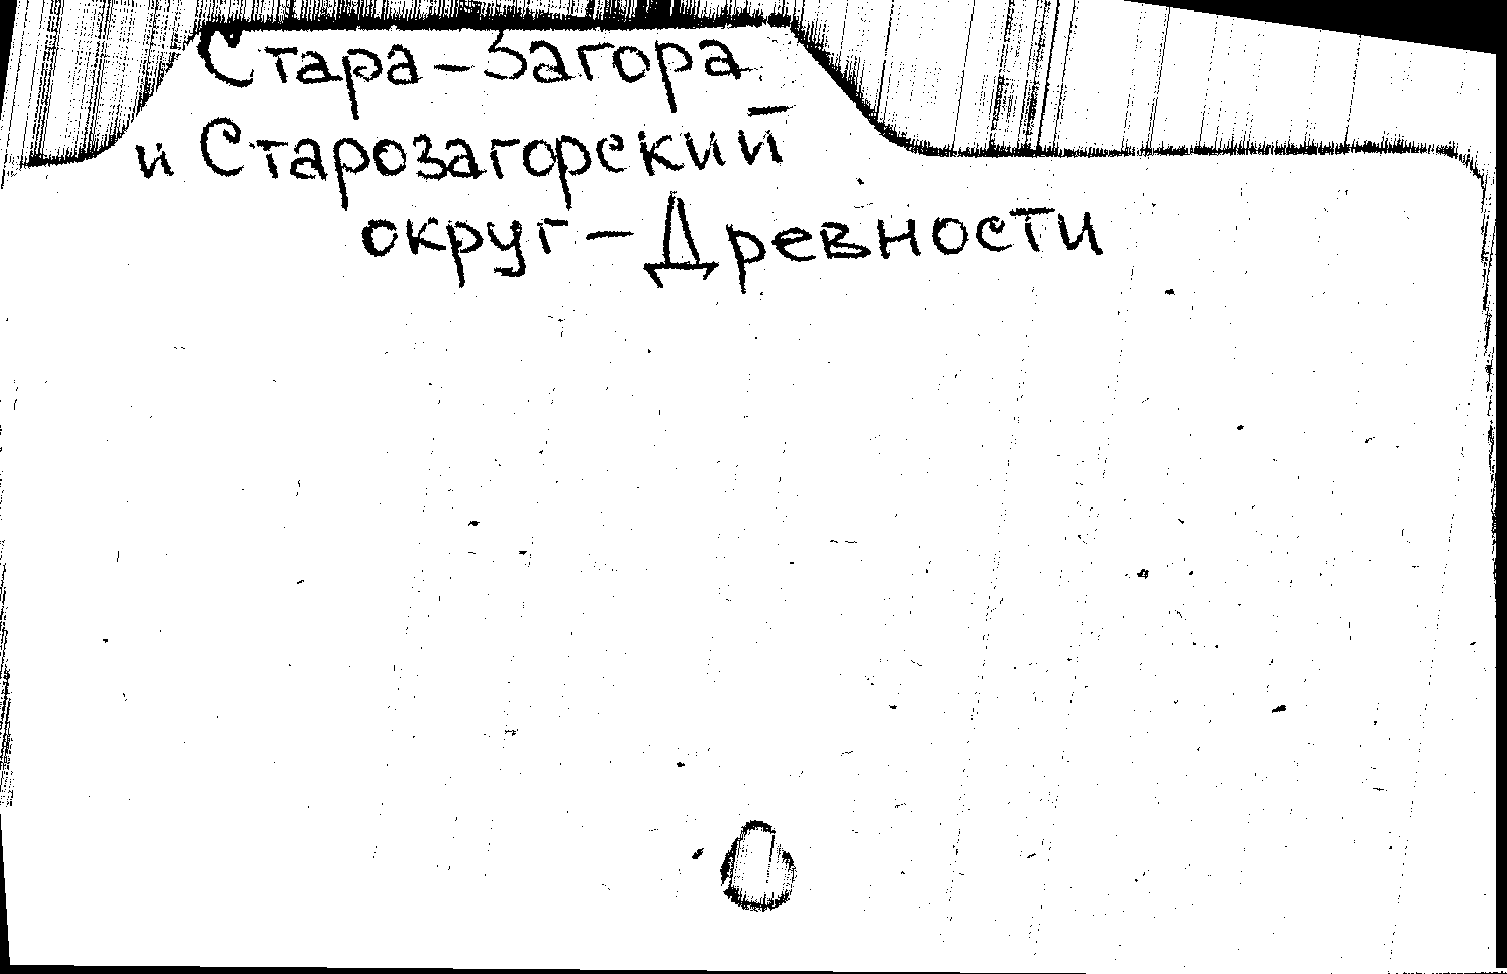 Стара-Загора
и Старозагорский
округ-Древности